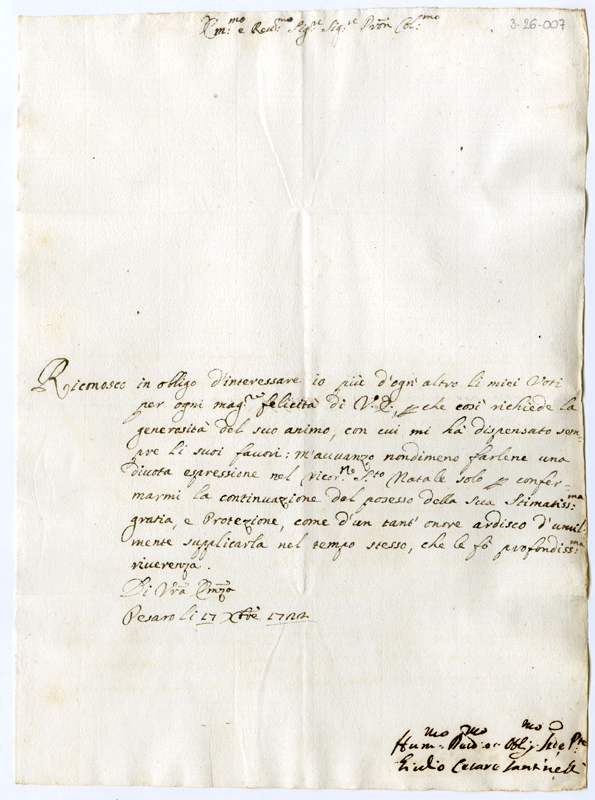 3-26-007
Em:mo e Rev:mo Sig:re Sig:re Pron Col:mo
Riconosco in obligo d'interessare io più d'ogn'altro li miei Voti
per ogni mag:re felicità di V.E., p che così richiede la
generosità del suo animo, con cui mi hà dispensato sem-
pre li suoi favori: m'avvanzo nondimeno farlene una
divota espressione nel ricor:te S:to Natale solo p confer-
marmi la continuazione del posesso della sua Stimatiss:ma
gratia, e Protezione, come d'un tant' onore ardisco d'umil-
mente supplicarla nel tempo stesso, che le fò profondiss:ma
riverenza.
Di Vra Emza
Pesaro li 17 Xbre 1722
Hum:mo Oblig:mo
Giulio Cesare Santinelli